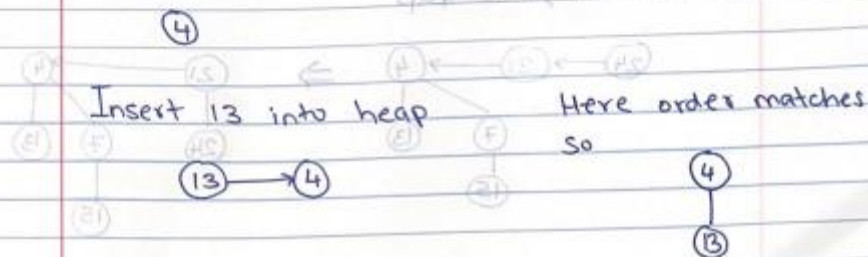 4
Insert 13 into heap
13 → 4
Here order matches
so
4
13